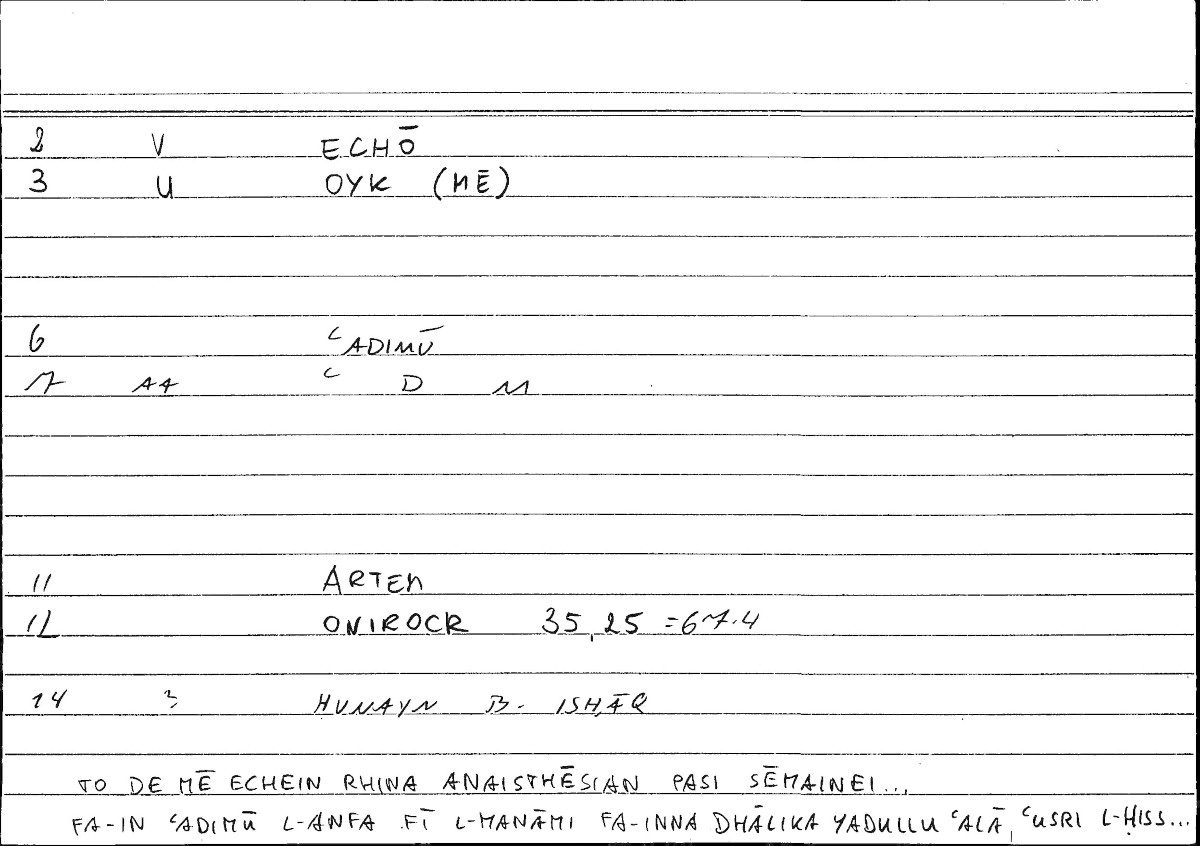 2 V ECHŌ
3 U OYK (MĒ)
6 ʿADIMŪ
7 A4 ʿ D M
11 ARTEM
12 ONIROCR 35,25 =67.4
14 3 ḤUNAYN B. ISḤĀQ
TO DE MĒ ECHEIN RHINA ANAISTHĒSIAN PASI SĒMAINEI...
FA-IN ʿADIMŪ L-ANFA FĪ L-MANĀMI FA-INNA DHĀLIKA YADULLU ʿALĀ ʿUSRI L-ḤISS...